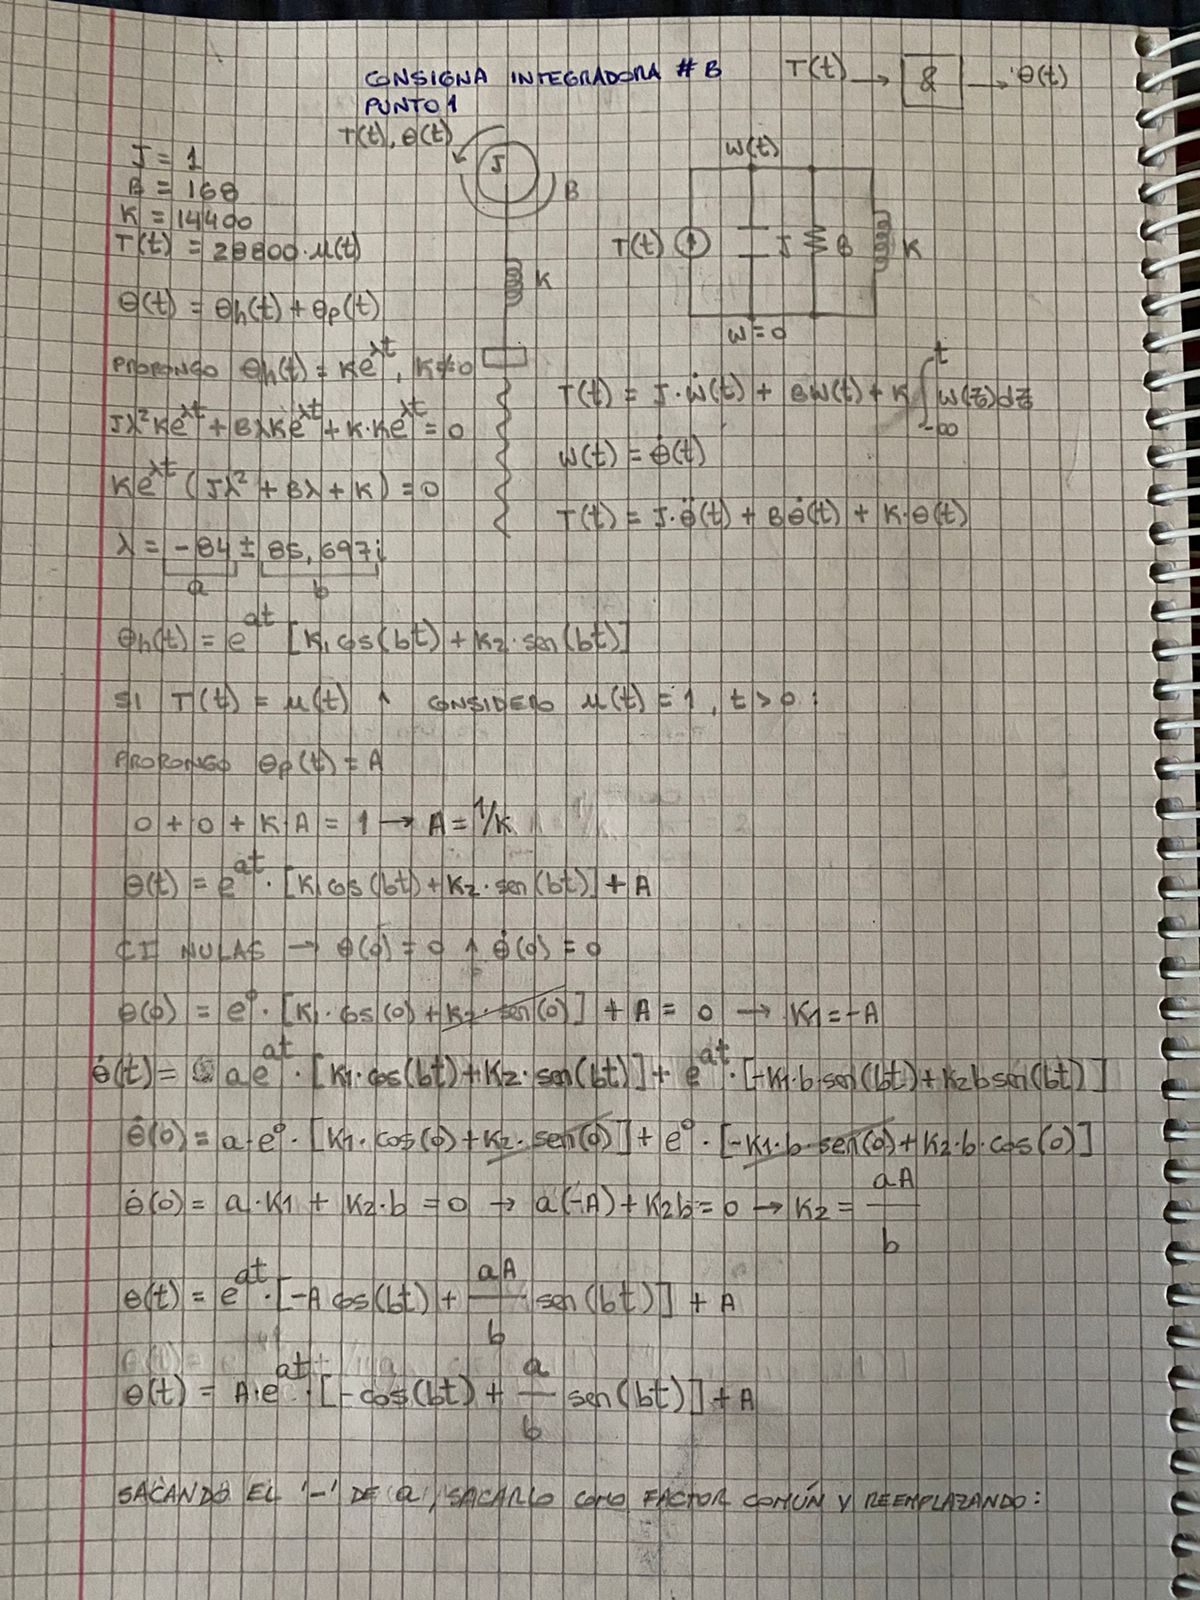 CONSIGNA INTEGRADORA #B
PUNTO 1
T(t) → & → θ(t)
T(t), θ(t)
J
B
K
J = 1
B = 168
K = 14400
T(t) = 28800·μ(t)
θ(t) = θh(t) + θp(t)
W(t)
T(t)
J
B
K
W=0
PROPONGO θh(t) = Ke^λt, K≠0
Jλ²Ke^λt + BλKe^λt + K·Ke^λt = 0
Ke^λt (Jλ² + Bλ + K) = 0
λ = -84 ± 85,697i
a b
T(t) = J·ẇ(t) + BW(t) + K∫_-∞^t W(z)dz
W(t) = θ̇(t)
T(t) = J·θ̈(t) + Bθ̇(t) + K·θ(t)
θh(t) = e^at [K1 cos(bt) + K2·sen(bt)]
SI T(t) = μ(t) ∧ CONSIDERO μ(t) = 1, t>0:
PROPONGO θp(t) = A
0 + 0 + K·A = 1 → A = 1/K
θ(t) = e^at · [K1 cos(bt) + K2·sen(bt)] + A
CI NULAS → θ(0) = 0 ∧ θ̇(0) = 0
θ(0) = e^0 · [K1·cos(0) + K2·sen(0)] + A = 0 → K1 = -A
θ̇(t) = ae^at · [K1·cos(bt) + K2·sen(bt)] + e^at · [-K1·b·sen(bt) + K2bsen(bt)]
θ̇(0) = a·e^0 · [K1·cos(0) + K2·sen(0)] + e^0 · [-K1·b·sen(0) + K2·b·cos(0)]
θ̇(0) = a·K1 + K2·b = 0 → a(-A) + K2b = 0 → K2 = aA/b
θ(t) = e^at · [-A cos(bt) + aA/b sen(bt)] + A
θ(t) = A·e^at · [-cos(bt) + a/b sen(bt)] + A
SACANDO EL '-' DE a, SACARLO COMO FACTOR COMÚN Y REEMPLAZANDO: